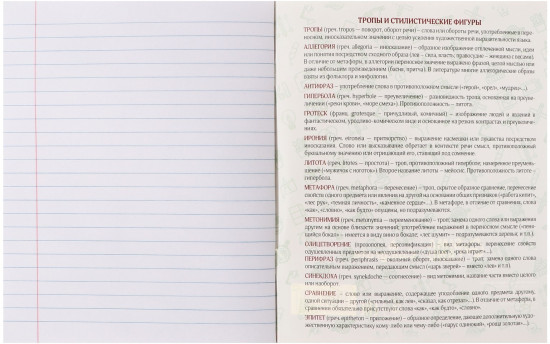 ТРОПЫ И СТИЛИСТИЧЕСКИЕ ФИГУРЫ
ТРОПЫ (греч. tropos – поворот, оборот речи) – слова или обороты речи, употребляемые в пере-
носном, иносказательном значении с целью усиления художественной выразительности языка.
АЛЛЕГОРИЯ (греч. allegoria – иносказание) – образное изображение отвлеченной мысли, идеи
или понятия посредством сходного образа (лев – сила, власть; правосудие – женщина с весами).
В отличие от метафоры, в аллегории переносное значение выражено фразой, целой мыслью или
даже небольшим произведением (басня, притча). В литературе многие аллегорические образы
взяты из фольклора и мифологии.
АНТИФРАЗ – употребление слова в противоположном смысле («герой», «орел», «мудрец»...).
ГИПЕРБОЛА (греч. hyperbole – преувеличение) – разновидность тропа, основанная на преуве-
личении («реки крови», «море смеха»). Противоположность – литота.
ГРОТЕСК (франц. grotesque – причудливый, комичный) – изображение людей и явления в
фантастическом, уродливо-комическом виде и основанное на резких контрастах и преувеличе-
ниях.
ИРОНИЯ (греч. eironeia – притворство) – выражение насмешки или лукавства посредством
иносказания. Слово или высказывание обретает в контексте речи смысл, противоположный
буквальному значению или отрицающий его, ставящий под сомнение.
ЛИТОТА (греч. litotes – простота) – троп, противоположный гиперболе; намеренное преумень-
шение («мужичок с ноготок»). Второе название литоты – мейосис. Противоположность литоты –
гипербола.
МЕТАФОРА (греч. metaphora – перенесение) – троп, скрытое образное сравнение, перенесение
свойств одного предмета или явления на другой на основании общих признаков («работа кипит»,
«лес рук», «темная личность», «каменное сердце»...). В метафоре, в отличие от сравнения, слова
«как», «словно», «как будто» опущены, но подразумеваются.
МЕТОНИМИЯ (греч. metonymia – переименование) – троп; замена одного слова или выражения
другим на основе близости значений; употребление выражений в переносном смысле («пеня-
щийся бокал» – имеется в виду вино в бокале; «лес шумит» – подразумеваются деревья; и т.п.).
ОЛИЦЕТВОРЕНИЕ (прозопопея, персонификация) – вид метафоры, перенесение свойств
одушевленных предметов на неодушевленные («душа поет», «река играет»...).
ПЕРИФРАЗ (греч. periphrasis – окольный оборот, иносказание) – троп; замена одного слова
описательным выражением, передающим смысл («царь зверей» – вместо «лев» и т.п.).
СИНЕКДОХА (греч. synekdoche – соотнесение) – вид метонимии, название части вместо целого
или наоборот.
СРАВНЕНИЕ – слово или выражение, содержащее уподобление одного предмета другому,
одной ситуации – другой («сильный, как лев», «сказал, как отрезал»...). В отличие от метафоры, в
сравнении обязательно присутствуют слова «как», «как будто», «словно».
ЭПИТЕТ (греч. epitheton – приложение) – образное определение, дающее дополнительную худо-
жественную характеристику кому-либо или чему-либо («парус одинокий», «роща золотая»...).